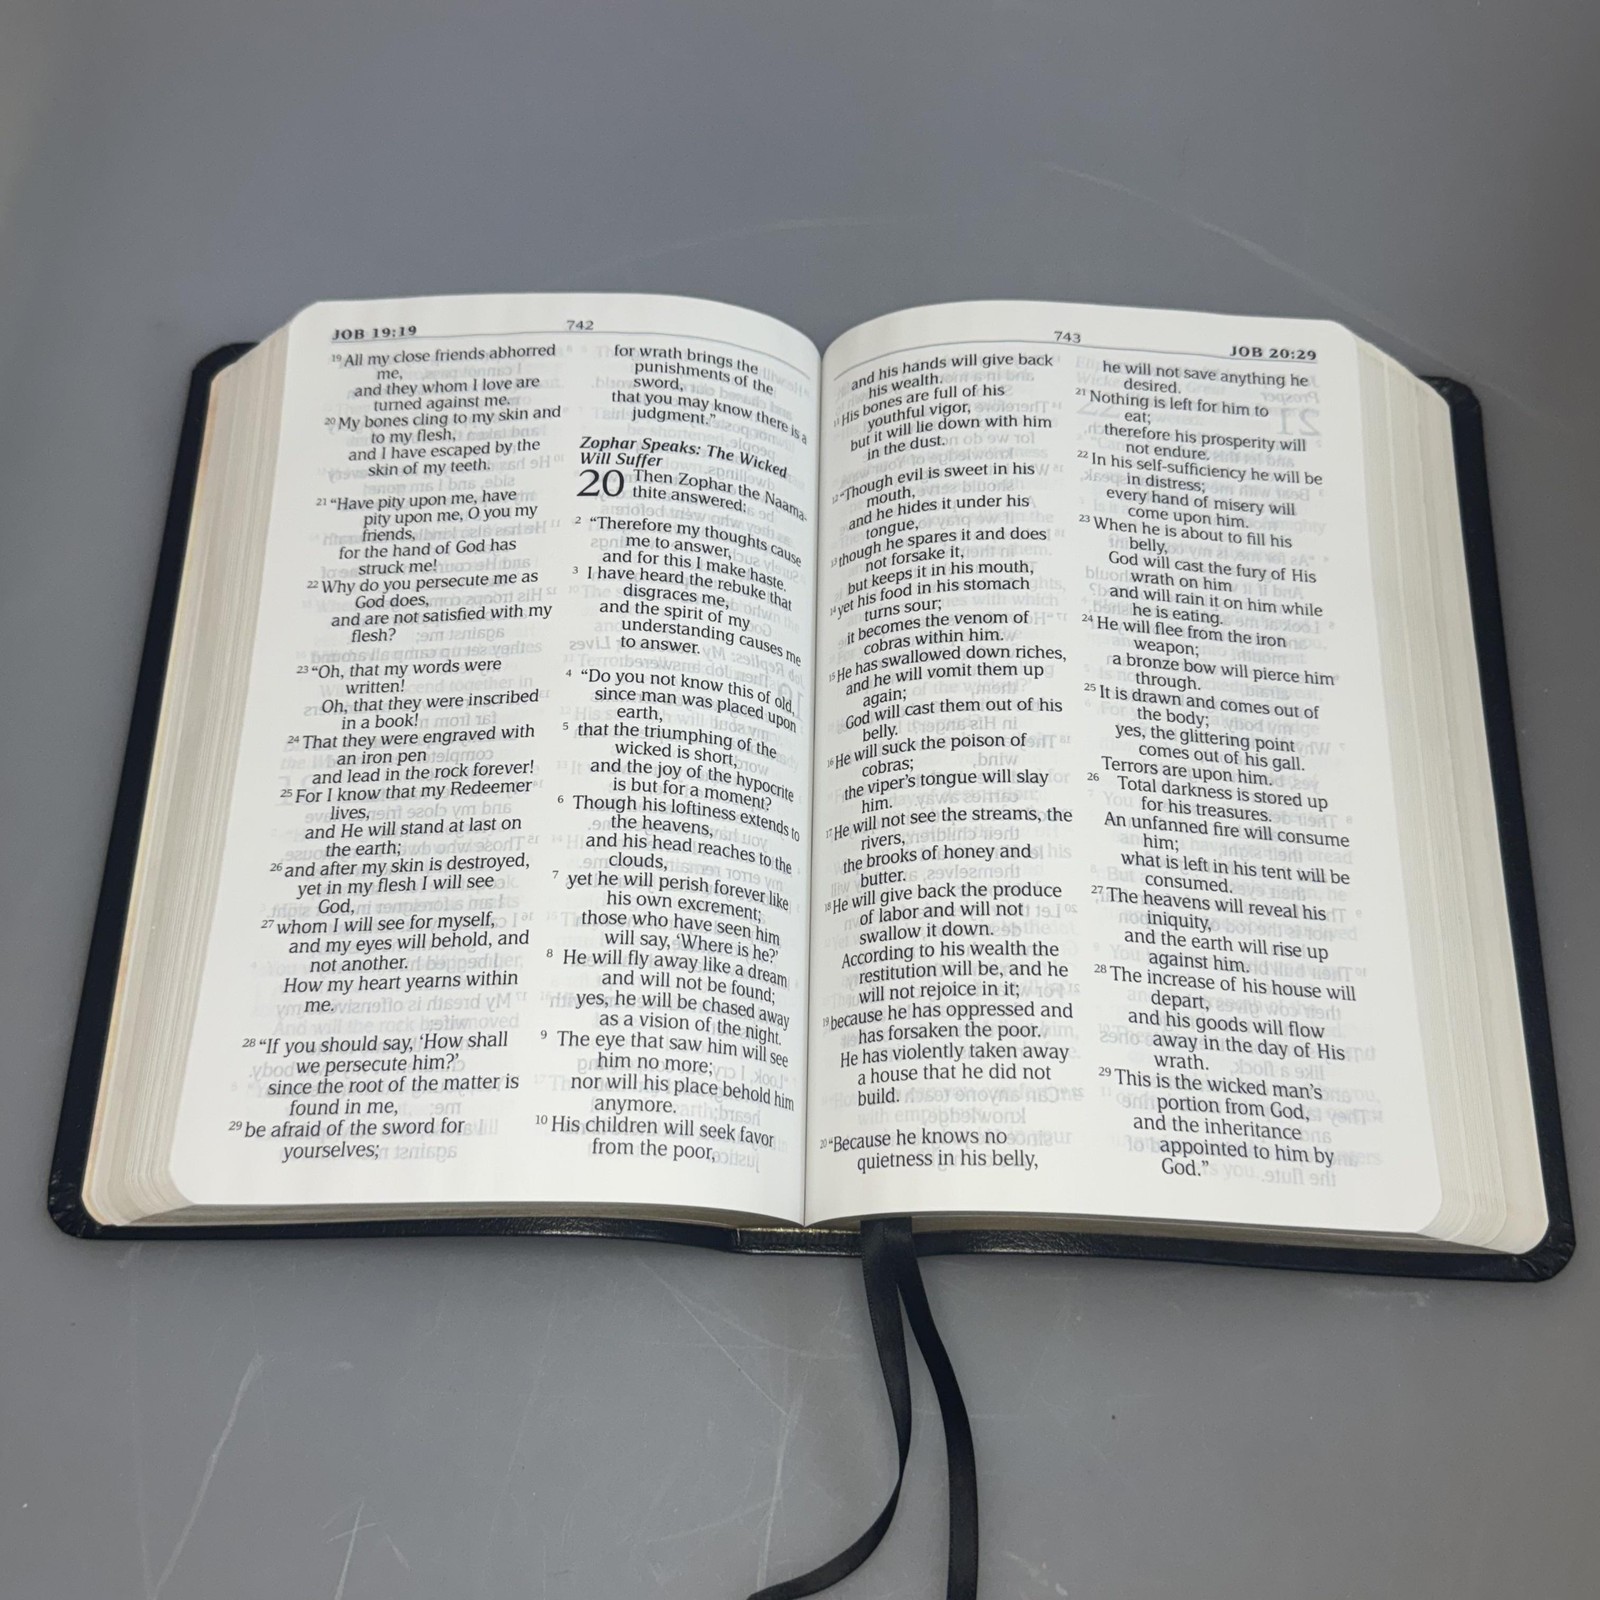 JOB 19:19
742
19 All my close friends abhorred
me,
and they whom I love are
turned against me.
20 My bones cling to my skin and
to my flesh,
and I have escaped by the
skin of my teeth.
21 “Have pity upon me, have
pity upon me, O you my
friends,
for the hand of God has
struck me!
22 Why do you persecute me as
God does,
and are not satisfied with my
flesh?
23 “Oh, that my words were
written!
Oh, that they were inscribed
in a book!
24 That they were engraved with
an iron pen
and lead in the rock forever!
25 For I know that my Redeemer
lives,
and He will stand at last on
the earth;
26 and after my skin is destroyed,
yet in my flesh I will see
God,
27 whom I will see for myself,
and my eyes will behold, and
not another.
How my heart yearns within
me.
28 “If you should say, ‘How shall
we persecute him?’
since the root of the matter is
found in me,
29 be afraid of the sword for
yourselves;
for wrath brings the
punishments of the
sword,
that you may know there is a
judgment.”
Zophar Speaks: The Wicked
Will Suffer
20 Then Zophar the Naama-
thite answered:
2 “Therefore my thoughts cause
me to answer,
and for this I make haste.
3 I have heard the rebuke that
disgraces me,
and the spirit of my
understanding causes me
to answer.
4 “Do you not know this of old,
since man was placed upon
earth,
5 that the triumphing of the
wicked is short,
and the joy of the hypocrite
is but for a moment?
6 Though his loftiness extends to
the heavens,
and his head reaches to the
clouds,
7 yet he will perish forever like
his own excrement;
those who have seen him
will say, ‘Where is he?’
8 He will fly away like a dream
and will not be found;
yes, he will be chased away
as a vision of the night.
9 The eye that saw him will see
him no more;
nor will his place behold him
anymore.
10 His children will seek favor
from the poor,
743
JOB 20:29
and his hands will give back
his wealth.
11 His bones are full of his
youthful vigor,
but it will lie down with him
in the dust.
12 “Though evil is sweet in his
mouth,
and he hides it under his
tongue,
13 though he spares it and does
not forsake it,
but keeps it in his mouth,
14 yet his food in his stomach
turns sour;
it becomes the venom of
cobras within him.
15 He has swallowed down riches,
and he will vomit them up
again;
God will cast them out of his
belly.
16 He will suck the poison of
cobras;
the viper’s tongue will slay
him.
17 He will not see the streams, the
rivers,
the brooks of honey and
butter.
18 He will give back the produce
of labor and will not
swallow it down.
According to his wealth the
restitution will be, and he
will not rejoice in it;
19 because he has oppressed and
has forsaken the poor.
He has violently taken away
a house that he did not
build.
20 “Because he knows no
quietness in his belly,
he will not save anything he
desired.
21 Nothing is left for him to
eat;
therefore his prosperity will
not endure.
22 In his self-sufficiency he will be
in distress;
every hand of misery will
come upon him.
23 When he is about to fill his
belly,
God will cast the fury of His
wrath on him
and will rain it on him while
he is eating.
24 He will flee from the iron
weapon;
a bronze bow will pierce him
through.
25 It is drawn and comes out of
the body;
yes, the glittering point
comes out of his gall.
Terrors are upon him.
26 Total darkness is stored up
for his treasures.
An unfanned fire will consume
him;
what is left in his tent will be
consumed.
27 The heavens will reveal his
iniquity,
and the earth will rise up
against him.
28 The increase of his house will
depart,
and his goods will flow
away in the day of His
wrath.
29 This is the wicked man’s
portion from God,
and the inheritance
appointed to him by
God.”